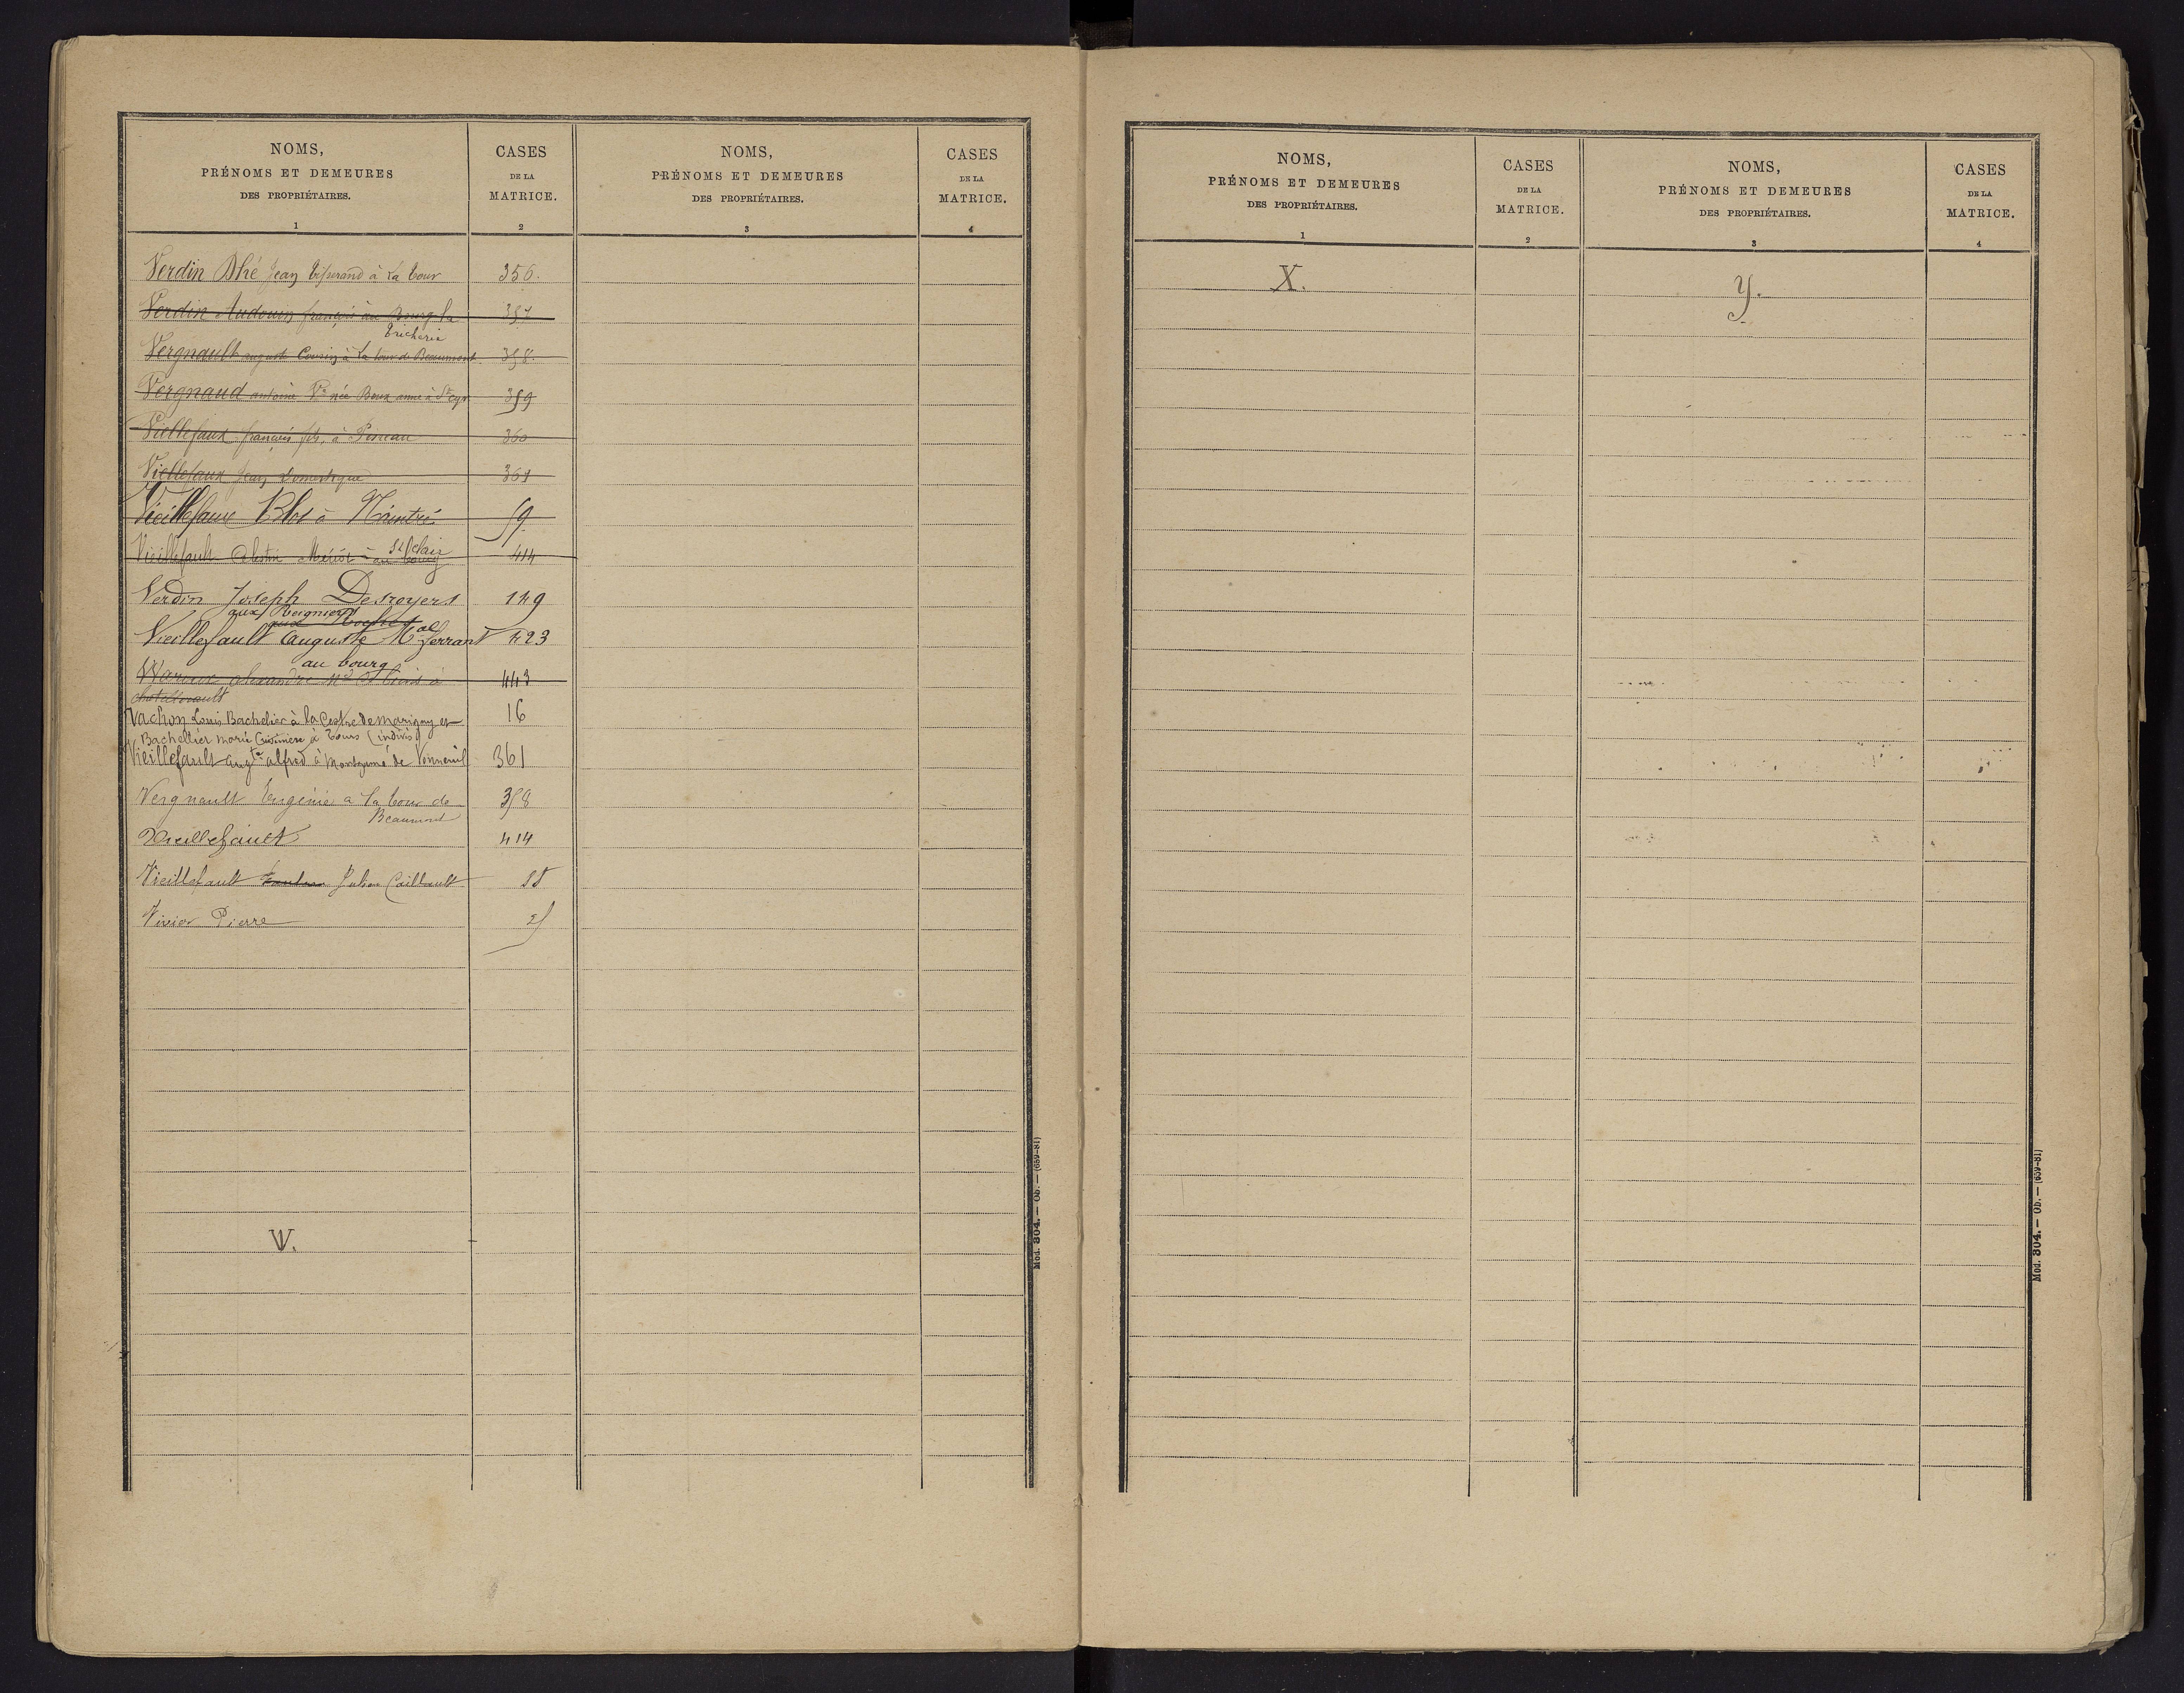 NOMS,
PRÉNOMS ET DEMEURES
DES PROPRIÉTAIRES.
1
CASES
DE LA
MATRICE.
2
NOMS,
PRÉNOMS ET DEMEURES
DES PROPRIÉTAIRES.
3
CASES
DE LA
MATRICE.
4
Verdin Dhé Jean à La tour 356.
Verdin Audouin françois au Bourg la 357
Tricherie
Vergnault auguste Cousin à La tour de Beaumont 358.
Vergnaud antoine Vve née Roux anne à St cyr 359
Viellefaux françois fils, à 360
Viellefaux Jean Domestique 361
Vieillefaux Blot à Naintré 59
Vieillefault Célestin à St Clair 414
au bourg
Verdin Joseph Desroyers 149
aux
aux Roches
Vieillefault Auguste Mal ferrant 423
au bourg
alexandre à 443
chatellerault
Vachon Louis Bachelier à la de marigny et 16
Bachellier marie Cuisinière à Tours (indivis)
Vieillefault augte alfred à Montgamé de Vouneuil 361
Vergnault Eugénie a la tour de 358
Beaumont
Vieillefault 414
Vieillefault Julien Caillault 55
Vivier Pierre 25
W.
Mod. 304. — Ob. — (659-81)
NOMS,
PRÉNOMS ET DEMEURES
DES PROPRIÉTAIRES.
1
CASES
DE LA
MATRICE.
2
NOMS,
PRÉNOMS ET DEMEURES
DES PROPRIÉTAIRES.
3
CASES
DE LA
MATRICE.
4
X.
Y.
Mod. 304. — Ob. — (659-81)